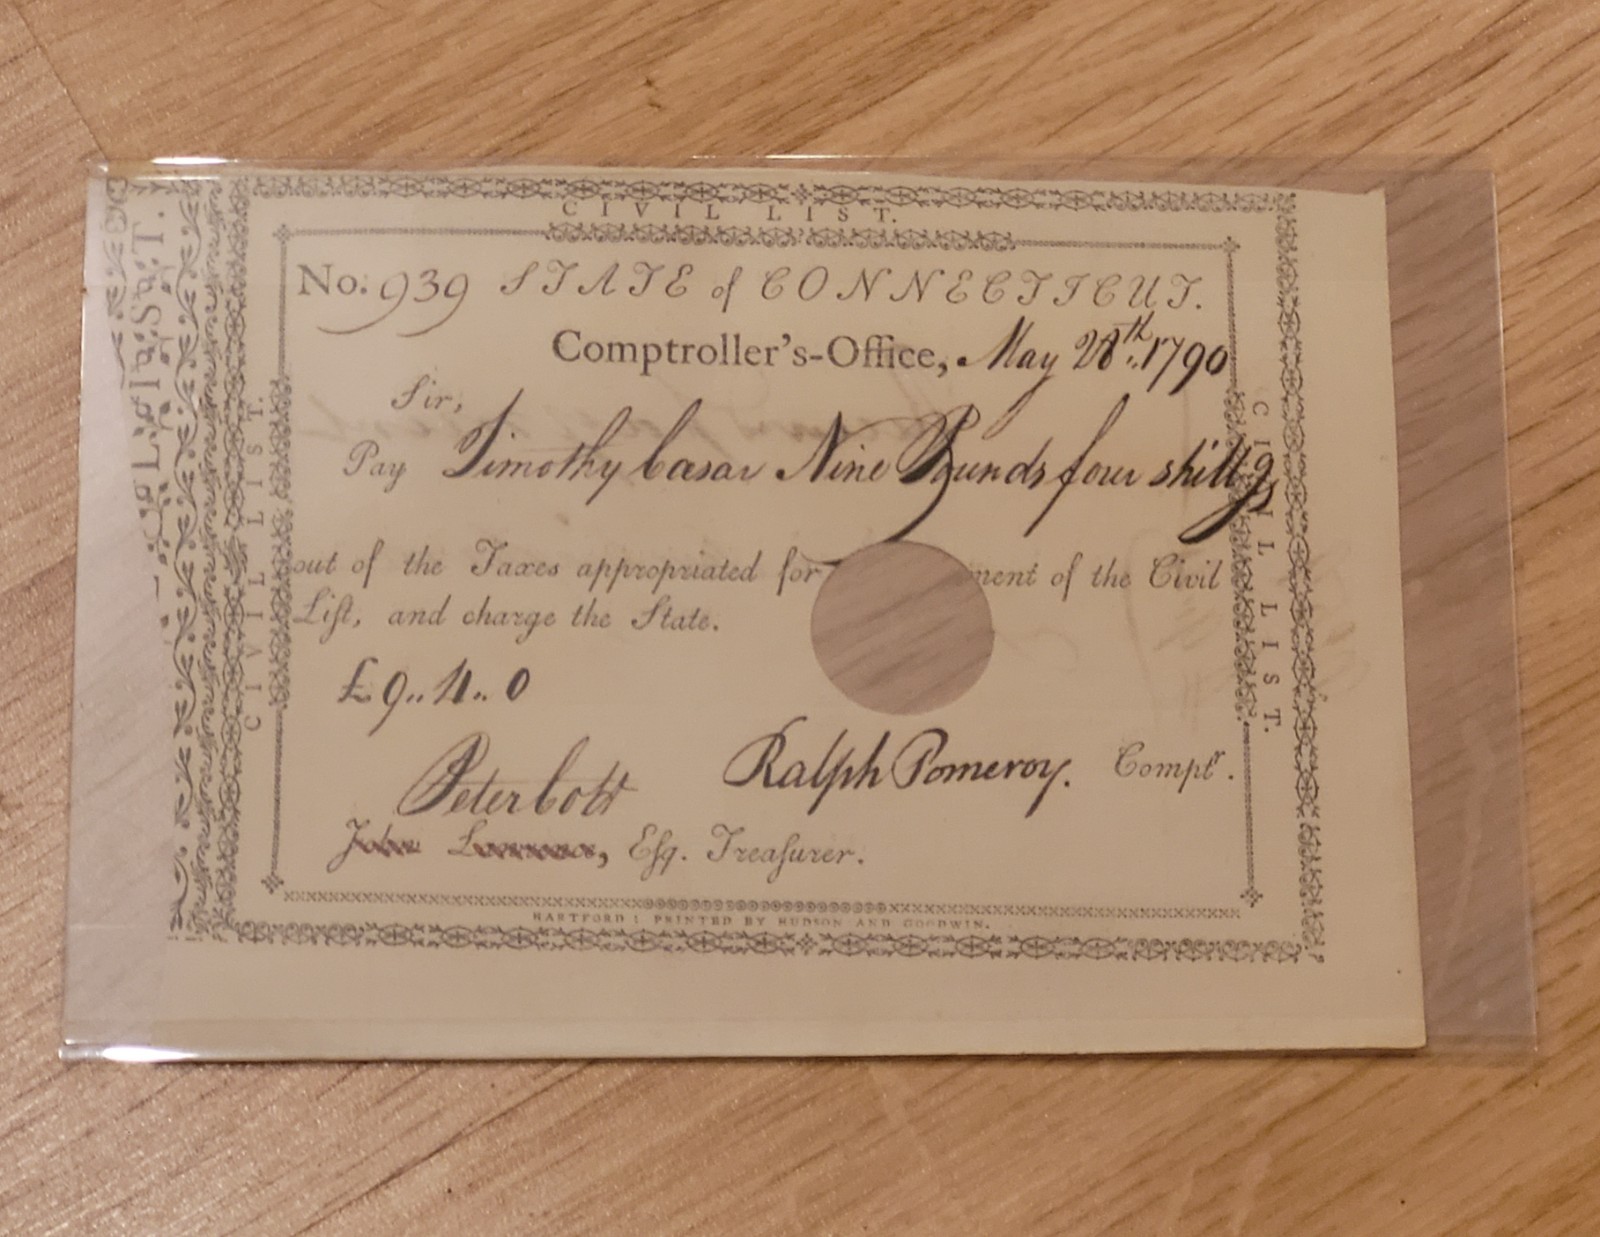 CIVIL LIST.
No. 939 STATE of CONNECTICUT.
Comptroller's-Office, May 28th. 1790
Sir,
Pay Timothy Cæsar Nine Pounds four shillgs
out of the Taxes appropriated for ment of the Civil
Liſt, and charge the State.
£9..4..0
Ralph Pomeroy. Comptr.
Peter Colt
John, Eſq. Treaſurer.
HARTFORD: PRINTED BY HUDSON AND GOODWIN.
CIVIL LIST.
CIVIL LIST.